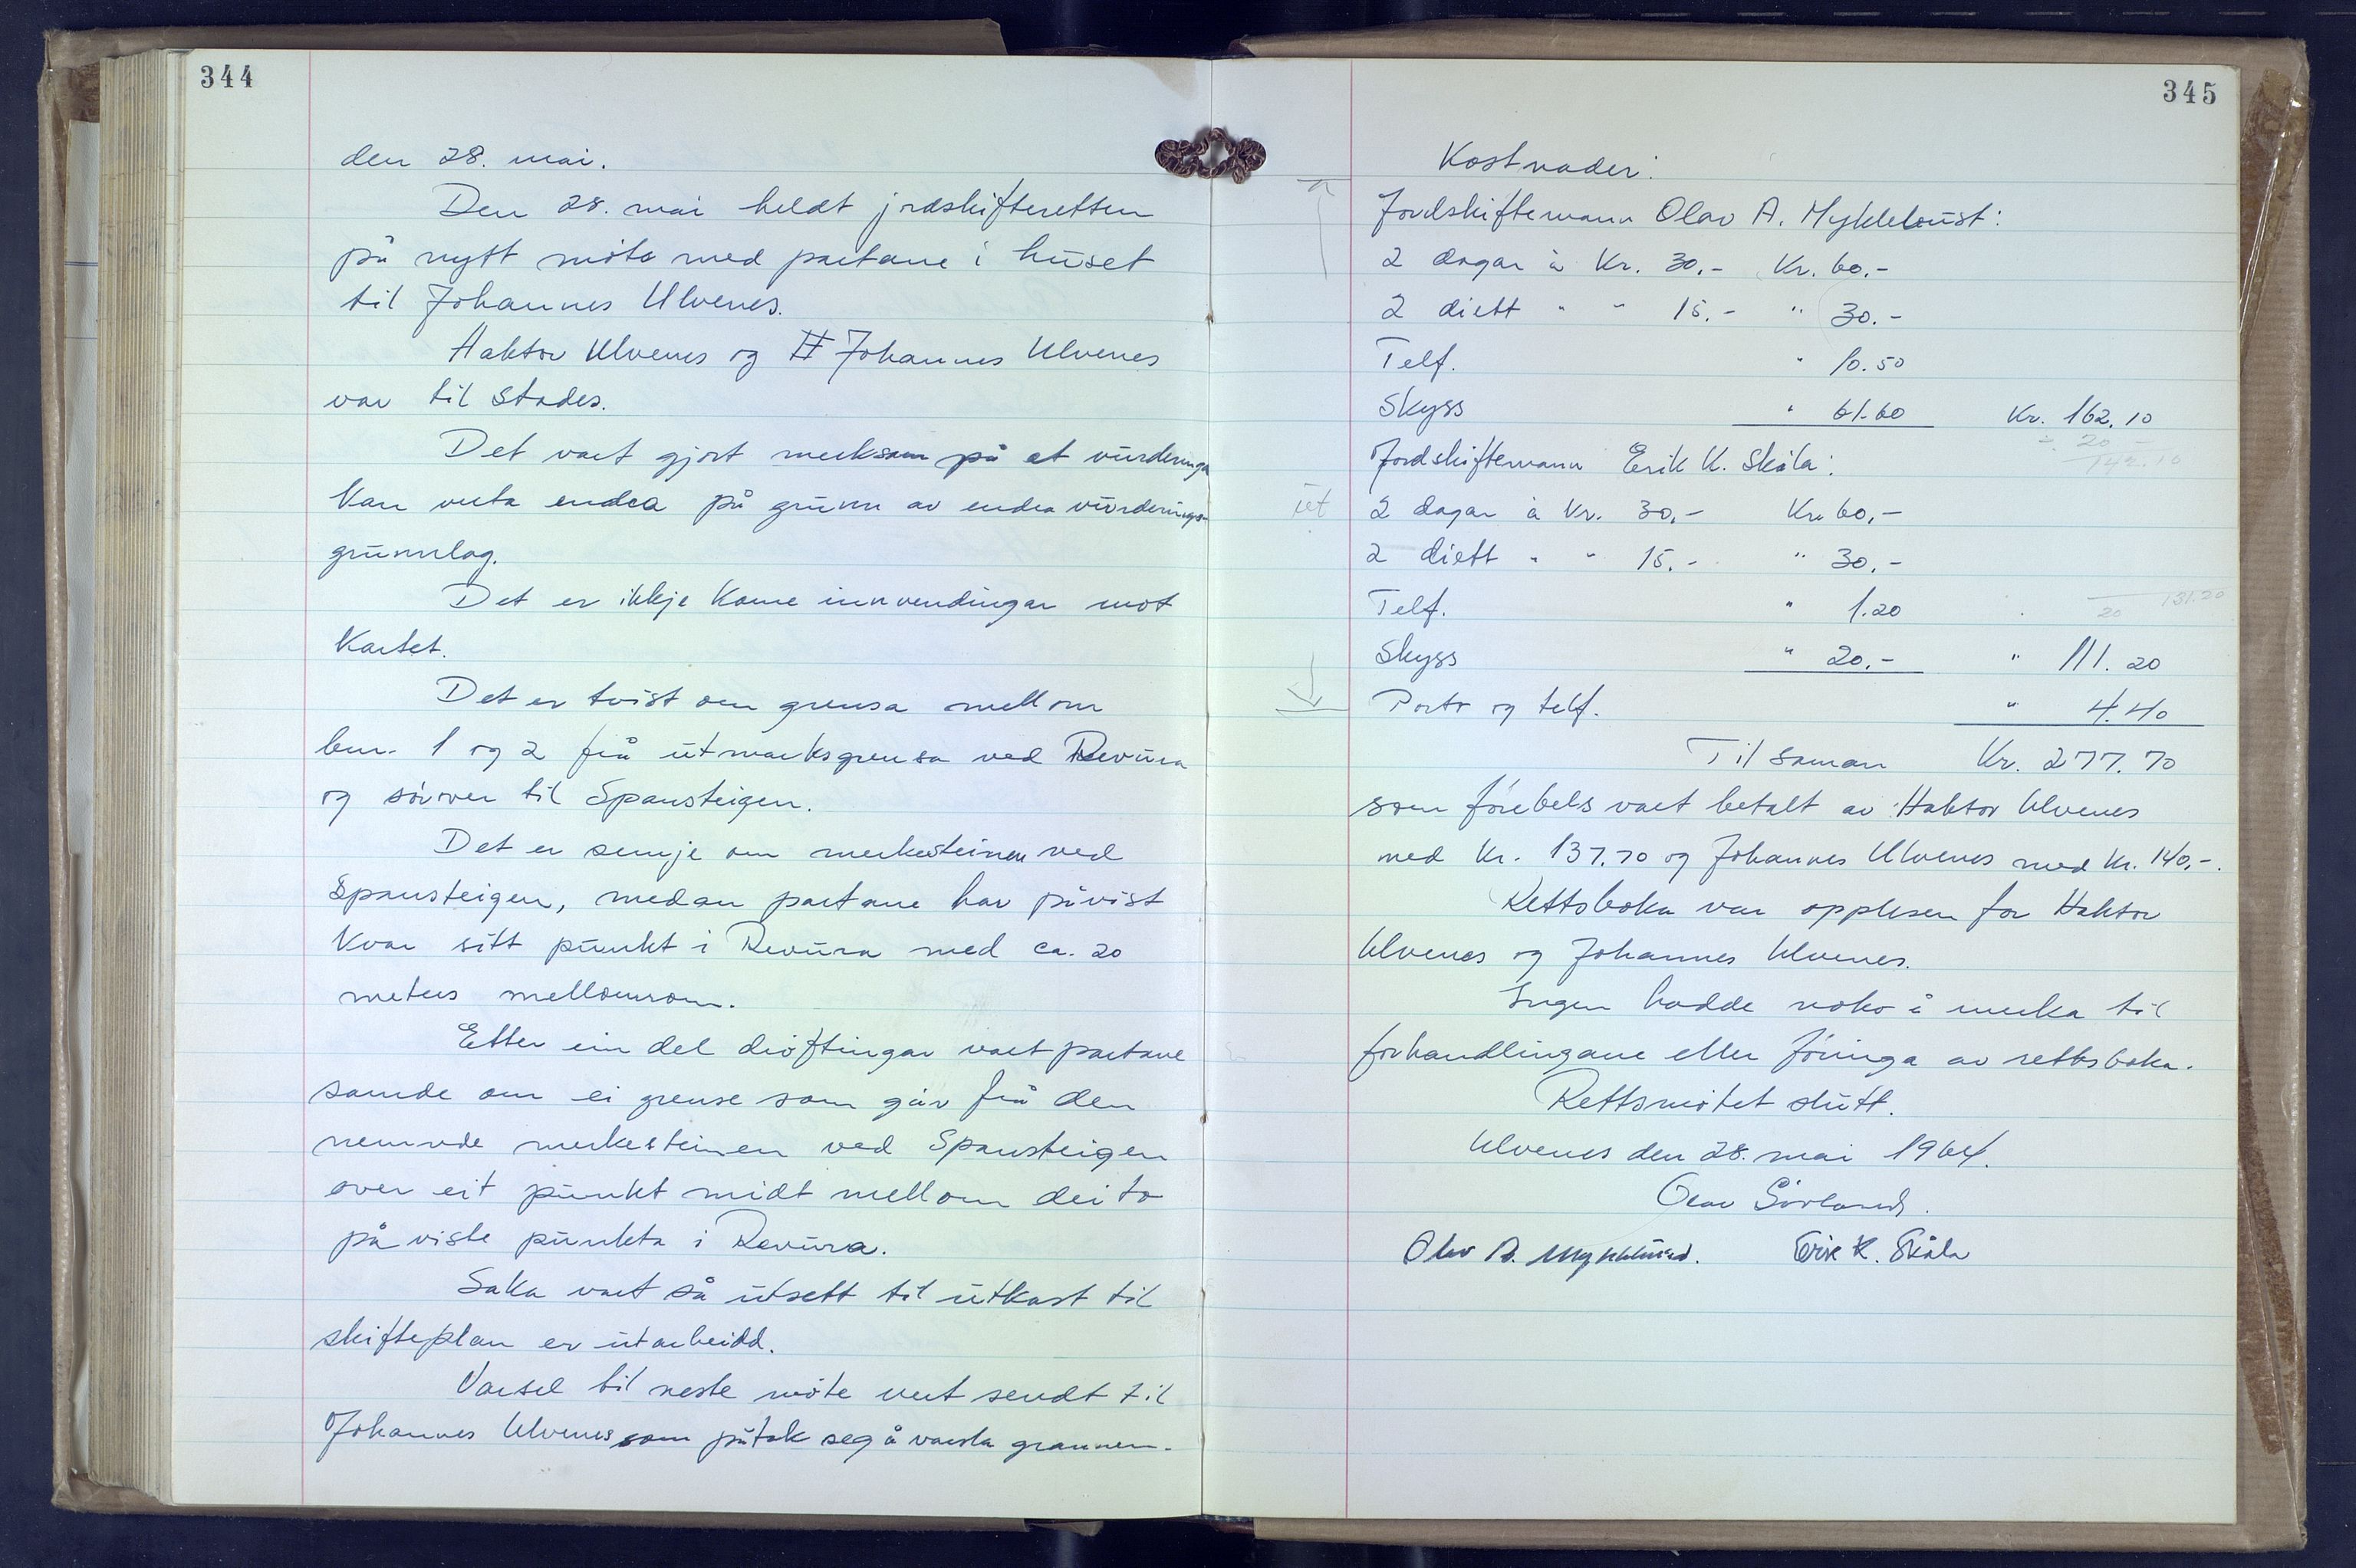 344
den 28. mai.
Den 28. mai heldt jordskifteretten
på nytt møte med partane i huset
til Johannes Ulvenes.
Haktor Ulvenes og Johannes Ulvenes
var til stades.
Det vart gjort merksam på at vurderinga
kan verta endra på grunn av endra vurderings-
grunnlag.
Det er ikkje kome innvendingar mot
kartet.
Det er tvist om grensa mellom
bnr. 1 og 2 frå utmarksgrensa ved Revura
og sørover til Spansteigen.
Det er semje om merkesteinen ved
Spansteigen, medan partane har påvist
kvar sitt punkt i Revura med ca. 20
meters mellomrom.
Etter ein del drøftingar vart partane
samde om ei grense som går frå den
nemnde merkesteinen ved Spansteigen
over eit punkt midt mellom dei to
påviste punkta i Revura.
Saka vart så utsett til utkast til
skifteplan er utarbeidd.
Varsel til neste møte vert sendt til
Johannes Ulvenes som påtok seg å varsla grannen.
345
Kostnader:
Jordskiftemann Olav A. Myklebust:
2 dagar à Kr. 30,- Kr. 60,-
2 diett " " 15.- " 30.-
Telf. " 10.50
Skyss " 61.60 Kr. 162.10
÷ 20 -
142.10
Jordskiftemann Erik K. Skåla:
ut 2 dagar à Kr. 30,- Kr. 60,-
2 diett " " 15.- " 30,-
Telf. " 1.20 20 131.20
Skyss " 20,- " 111.20
Porto og telf. " 4.40
Til saman Kr. 277.70
som førebels vart betalt av Haktor Ulvenes
med Kr. 137.70 og Johannes Ulvenes med Kr. 140,-.
Rettsboka var opplesen for Haktor
Ulvenes og Johannes Ulvenes.
Ingen hadde noko å merka til
forhandlingane eller føringa av rettsboka.
Rettsmøtet slutt.
Ulvenes den 28. mai 1964.
Olav Sørland.
Olav A. Myklebust. Erik K. Skåla